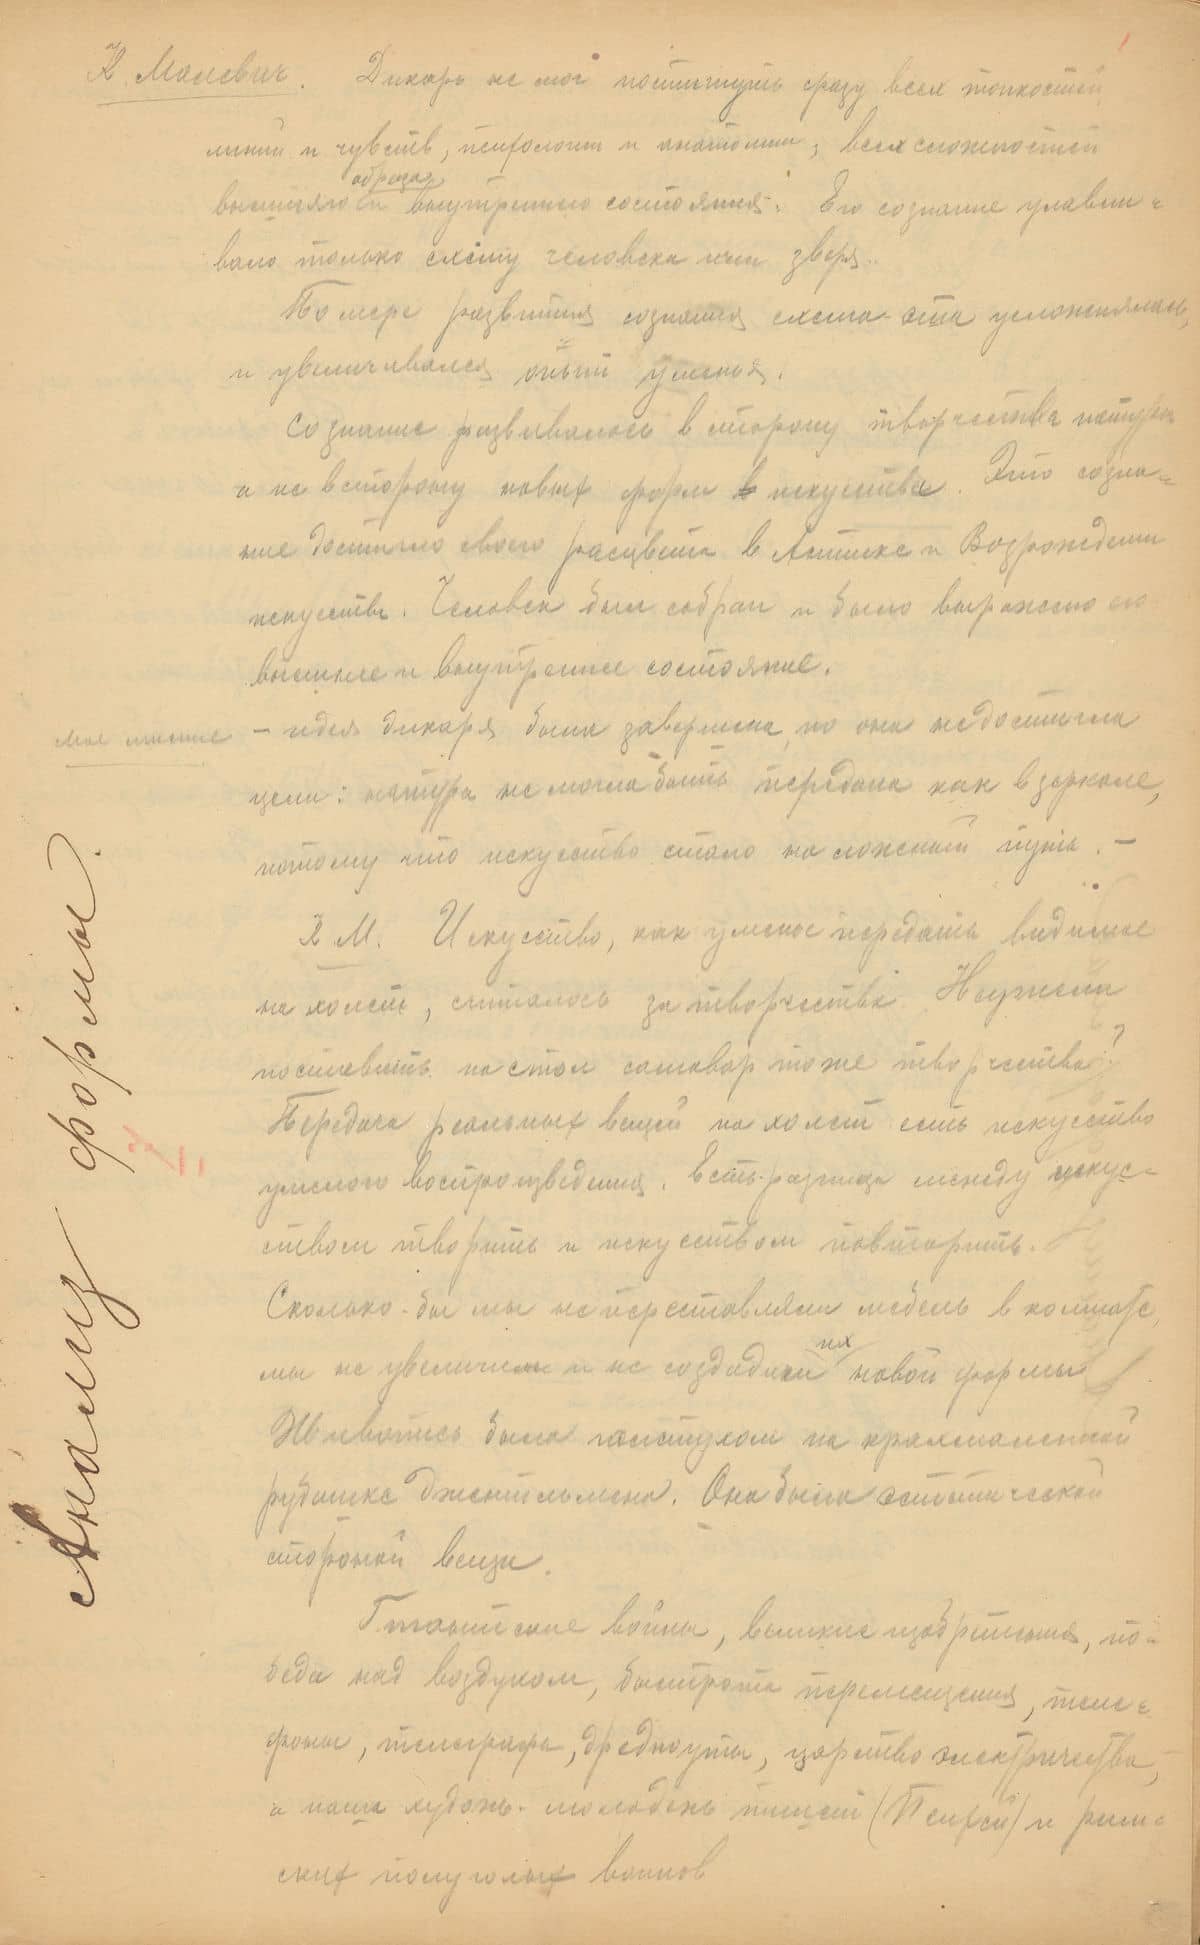 К. Малевич. Дикарь не мог постигнуть сразу всех тонкостей
линий и чувств, психологии и анатомии, всех сложностей
образа
внешняго и внутреннего состояния. Его сознание улавли-
вало только схему человека или зверя.
По мере развития сознания схема эта усложнялась,
и увеличивался опыт уменья.
Сознание развивалось в сторону творчества натуры
а не в сторону новых форм в искусстве. Это созна-
ние достигло своего расцвета в Антике и Возрождении
искусств. Человек был собран и было выражено его
внешнее и внутреннее состояние.
мое мнение — идея дикаря была завершена, но она не достигла
цели: натура не могла быть передана как в зеркале,
потому что искусство стало на ложный путь. —
К М. Искусство, как уменье передать видимое
на холст, считалось за творчество. Неужели
поставить на стол самовар тоже творчество?
Передача реальных вещей на холст есть искусство
умелого воспроизведения. Есть разница между искус-
ством творить и искусством повторить.
Сколько-бы мы не переставляли мебель в комнате,
их
мы не увеличим и не создадим новой формы
Живопись была галстухом на крахмальной
рубашке джентльмена. Она была эстетической
стороной вещи.
Гигантские войны, великие изобретения, по-
беда над воздухом, быстрота перемещения, теле-
фоны, телеграфы, дредноуты, царство электричества,
а наша худож. молодежь пишет (Псифей) и рим-
ских полуголых воинов
Анализ формы.